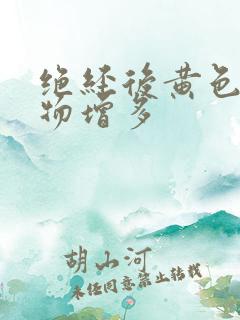 绝经后黄色
物增多
胡山河
未经同意禁止转载